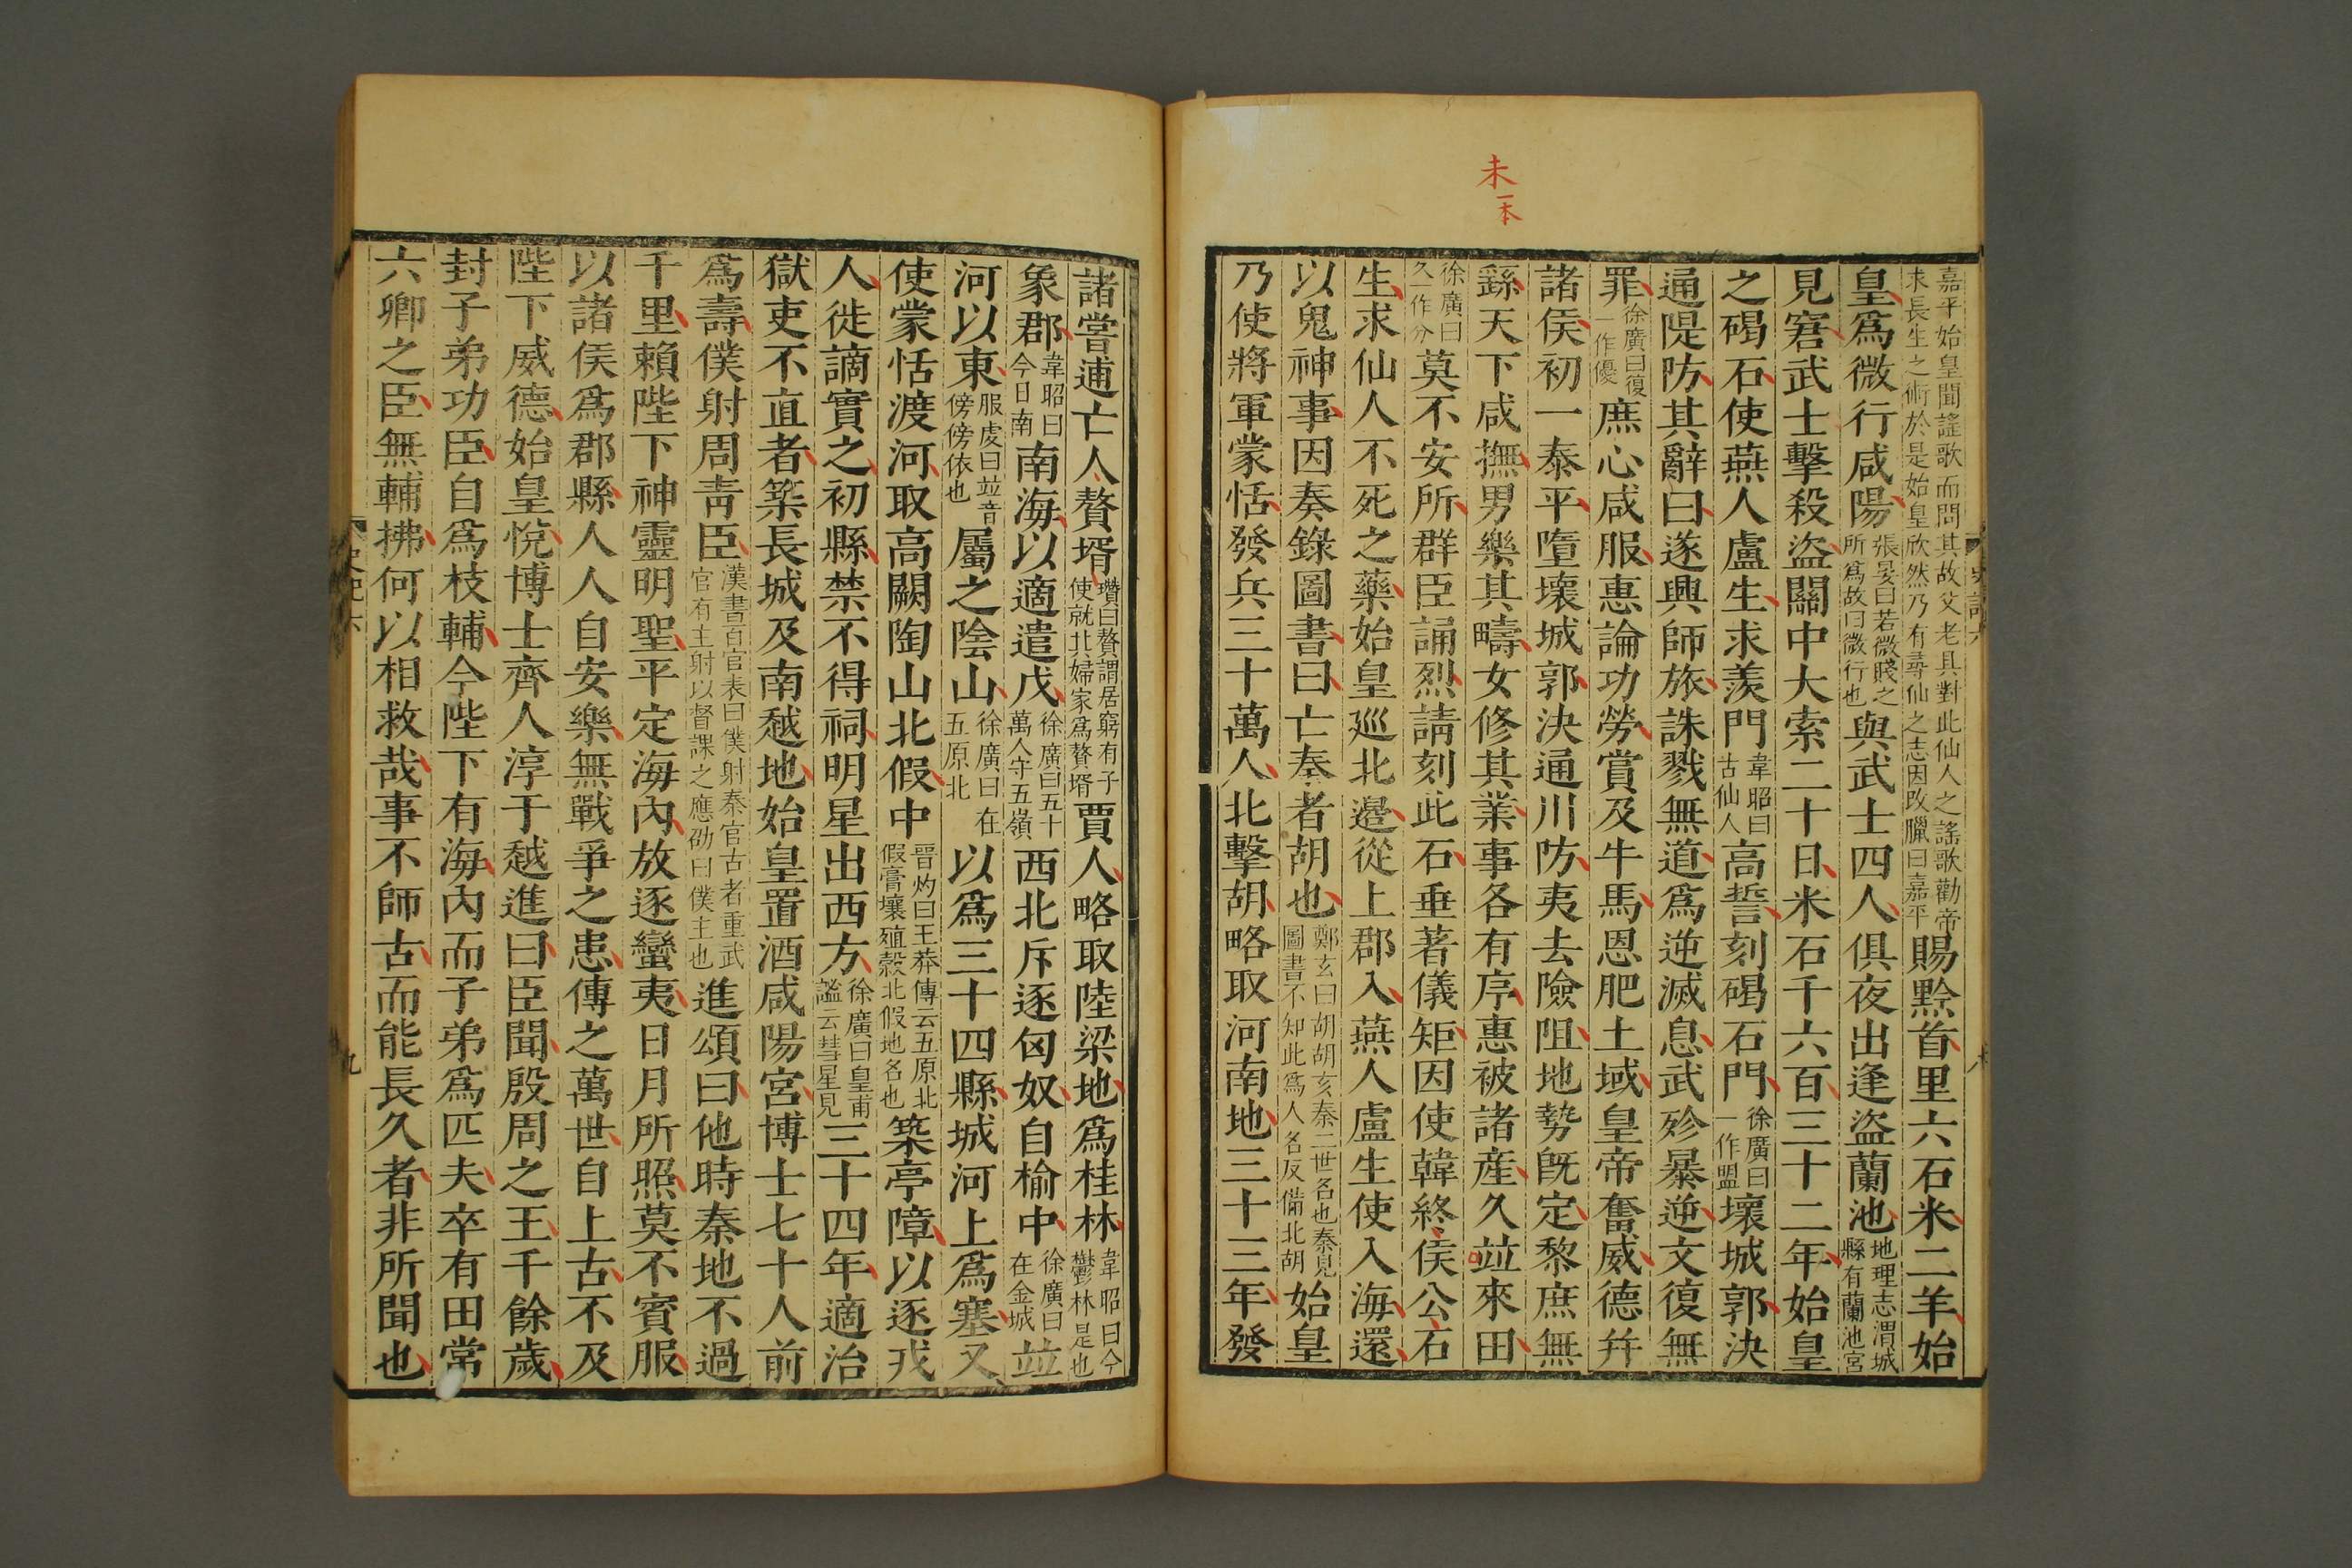 未一本
嘉平始皇聞謠歌而問其故父老具對此仙人之謠歌勸帝求長生之術於是始皇欣然乃有尋仙之志因改臘曰嘉平賜黔首里六石米二羊始
皇爲微行咸陽張晏曰若微賤之所爲故曰微行也與武士四人俱夜出逢盜蘭池地理志渭城縣有蘭池宮
見窘武士擊殺盜關中大索二十日米石千六百三十二年始皇
之碣石使燕人盧生求羨門韋昭曰古仙人高誓刻碣石門徐廣曰一作盟壞城郭決
通隄防其辭曰遂興師旅誅戮無道爲逆滅息武殄暴逆文復無
罪徐廣曰復一作優庶心咸服惠論功勞賞及牛馬恩肥土域皇帝奮威德幷
諸侯初一泰平墮壞城郭決通川防夷去險阻地勢旣定黎庶無
繇天下咸撫男樂其疇女修其業事各有序惠被諸產久竝來田
徐廣曰久一作分莫不安所群臣誦烈請刻此石垂著儀矩因使韓終侯公石
生求仙人不死之藥始皇巡北邊從上郡入燕人盧生使入海還
以鬼神事因奏錄圖書曰亡秦者胡也鄭玄曰胡胡亥秦二世名也秦見圖書不知此爲人名反備北胡始皇
乃使將軍蒙恬發兵三十萬人北擊胡略取河南地三十三年發
諸嘗逋亡人贅壻瓚曰贅謂居窮有子使就北婦家爲贅壻賈人略取陸梁地爲桂林韋昭曰今鬱林是也
象郡韋昭曰今日南南海以適遣戍徐廣曰五十萬人守五嶺西北斥逐匈奴自榆中徐廣曰在金城竝
河以東服虔曰竝音傍傍依也屬之陰山徐廣曰在五原北以爲三十四縣城河上爲塞又
使蒙恬渡河取高闕陶山北假中晉灼曰王莽傳云五原北假膏壤殖穀北假地名也築亭障以逐戎
人徙謫實之初縣禁不得祠明星出西方徐廣曰皇甫謐云彗星見三十四年適治
獄吏不直者築長城及南越地始皇置酒咸陽宮博士七十人前
爲壽僕射周青臣漢書百官表曰僕射秦官古者重武官有主射以督課之應劭曰僕主也進頌曰他時秦地不過
千里賴陛下神靈明聖平定海內放逐蠻夷日月所照莫不賓服
以諸侯爲郡縣人人自安樂無戰爭之患傳之萬世自上古不及
陛下威德始皇悅博士齊人淳于越進曰臣聞殷周之王千餘歲
封子弟功臣自爲枝輔今陛下有海內而子弟爲匹夫卒有田常
六卿之臣無輔拂何以相救哉事不師古而能長久者非所聞也
史記六
九